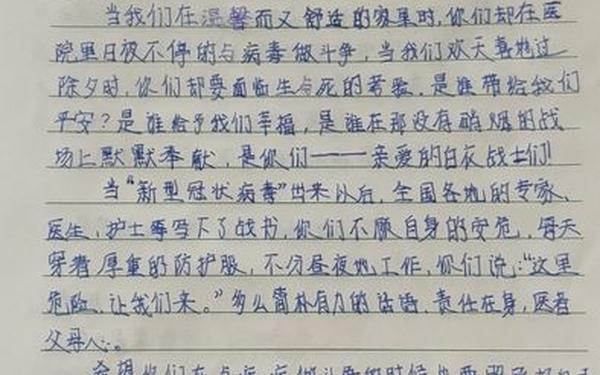 当我们在温馨而又舒适的家里时,你们却在医
院里日被不停的与病毒做斗争,当我们欢天喜地过
除夕时,你们却要面临生与死的考验,是谁带给我们
平安?是谁给予我们幸福,是谁在那没有硝烟的战
场上默默奉献,是你们——亲爱的白衣战士们!
当“新型冠状病毒”出来以后,全国各地的专家、
医生,护士再写下了战书,你们不顾自身的安危,每天
穿着厚重的防护服,不分昼夜地工作,你们说:“这里
危险,让我们来。”多么简朴有力的话语,责任在身,医者
父母心。
希望你们在与